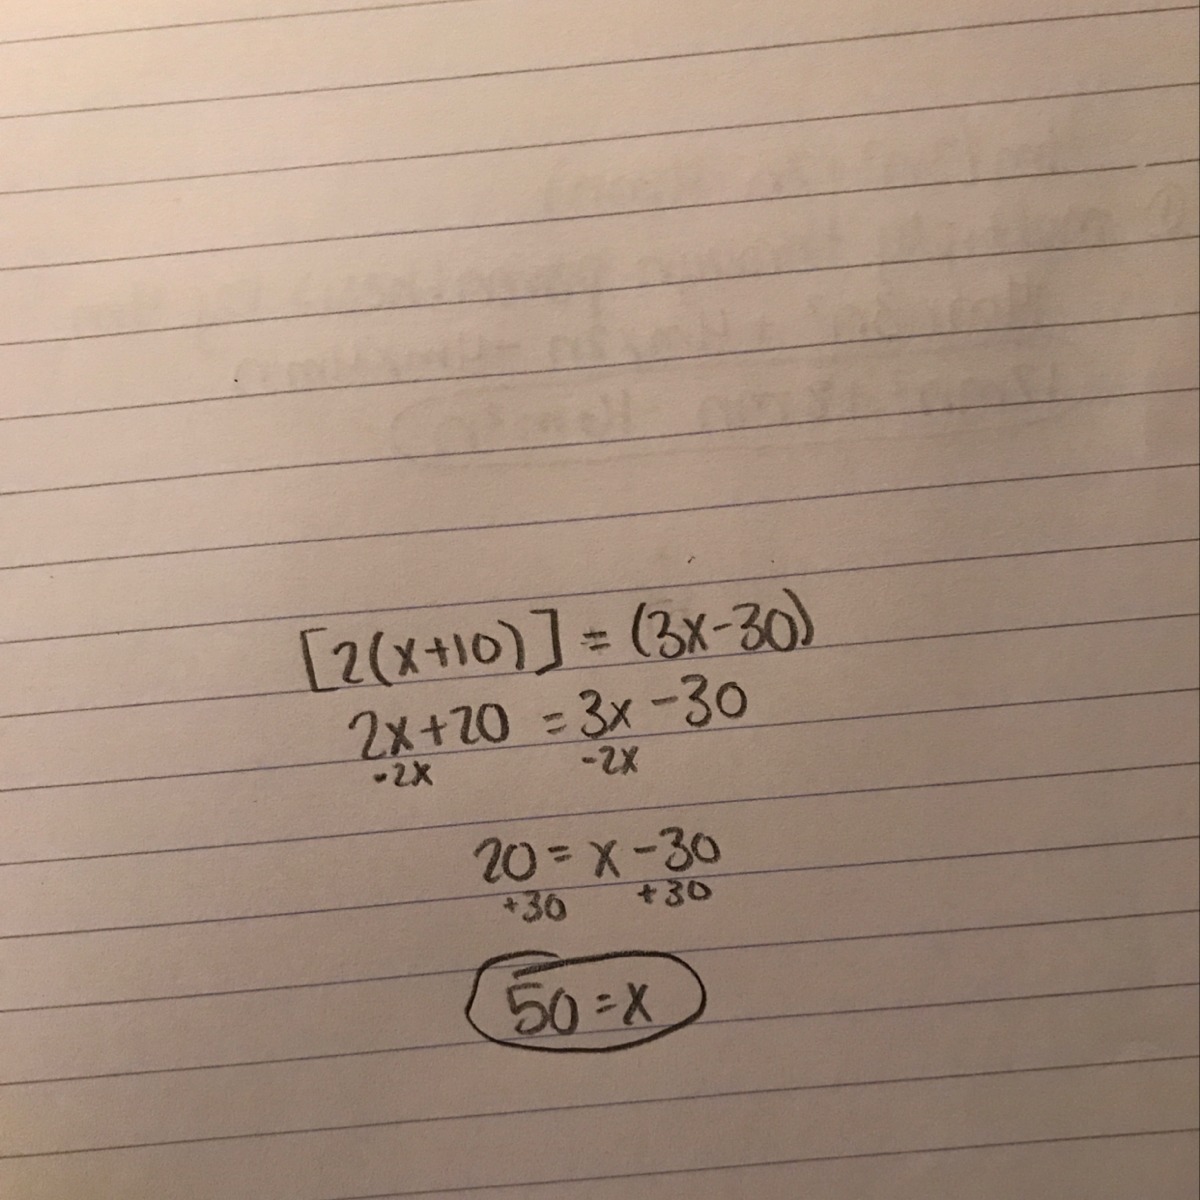 [2(x+10)] = (3x-30)
2x+20 = 3x-30
-2x -2x
20 = x-30
+30 +30
50 = x